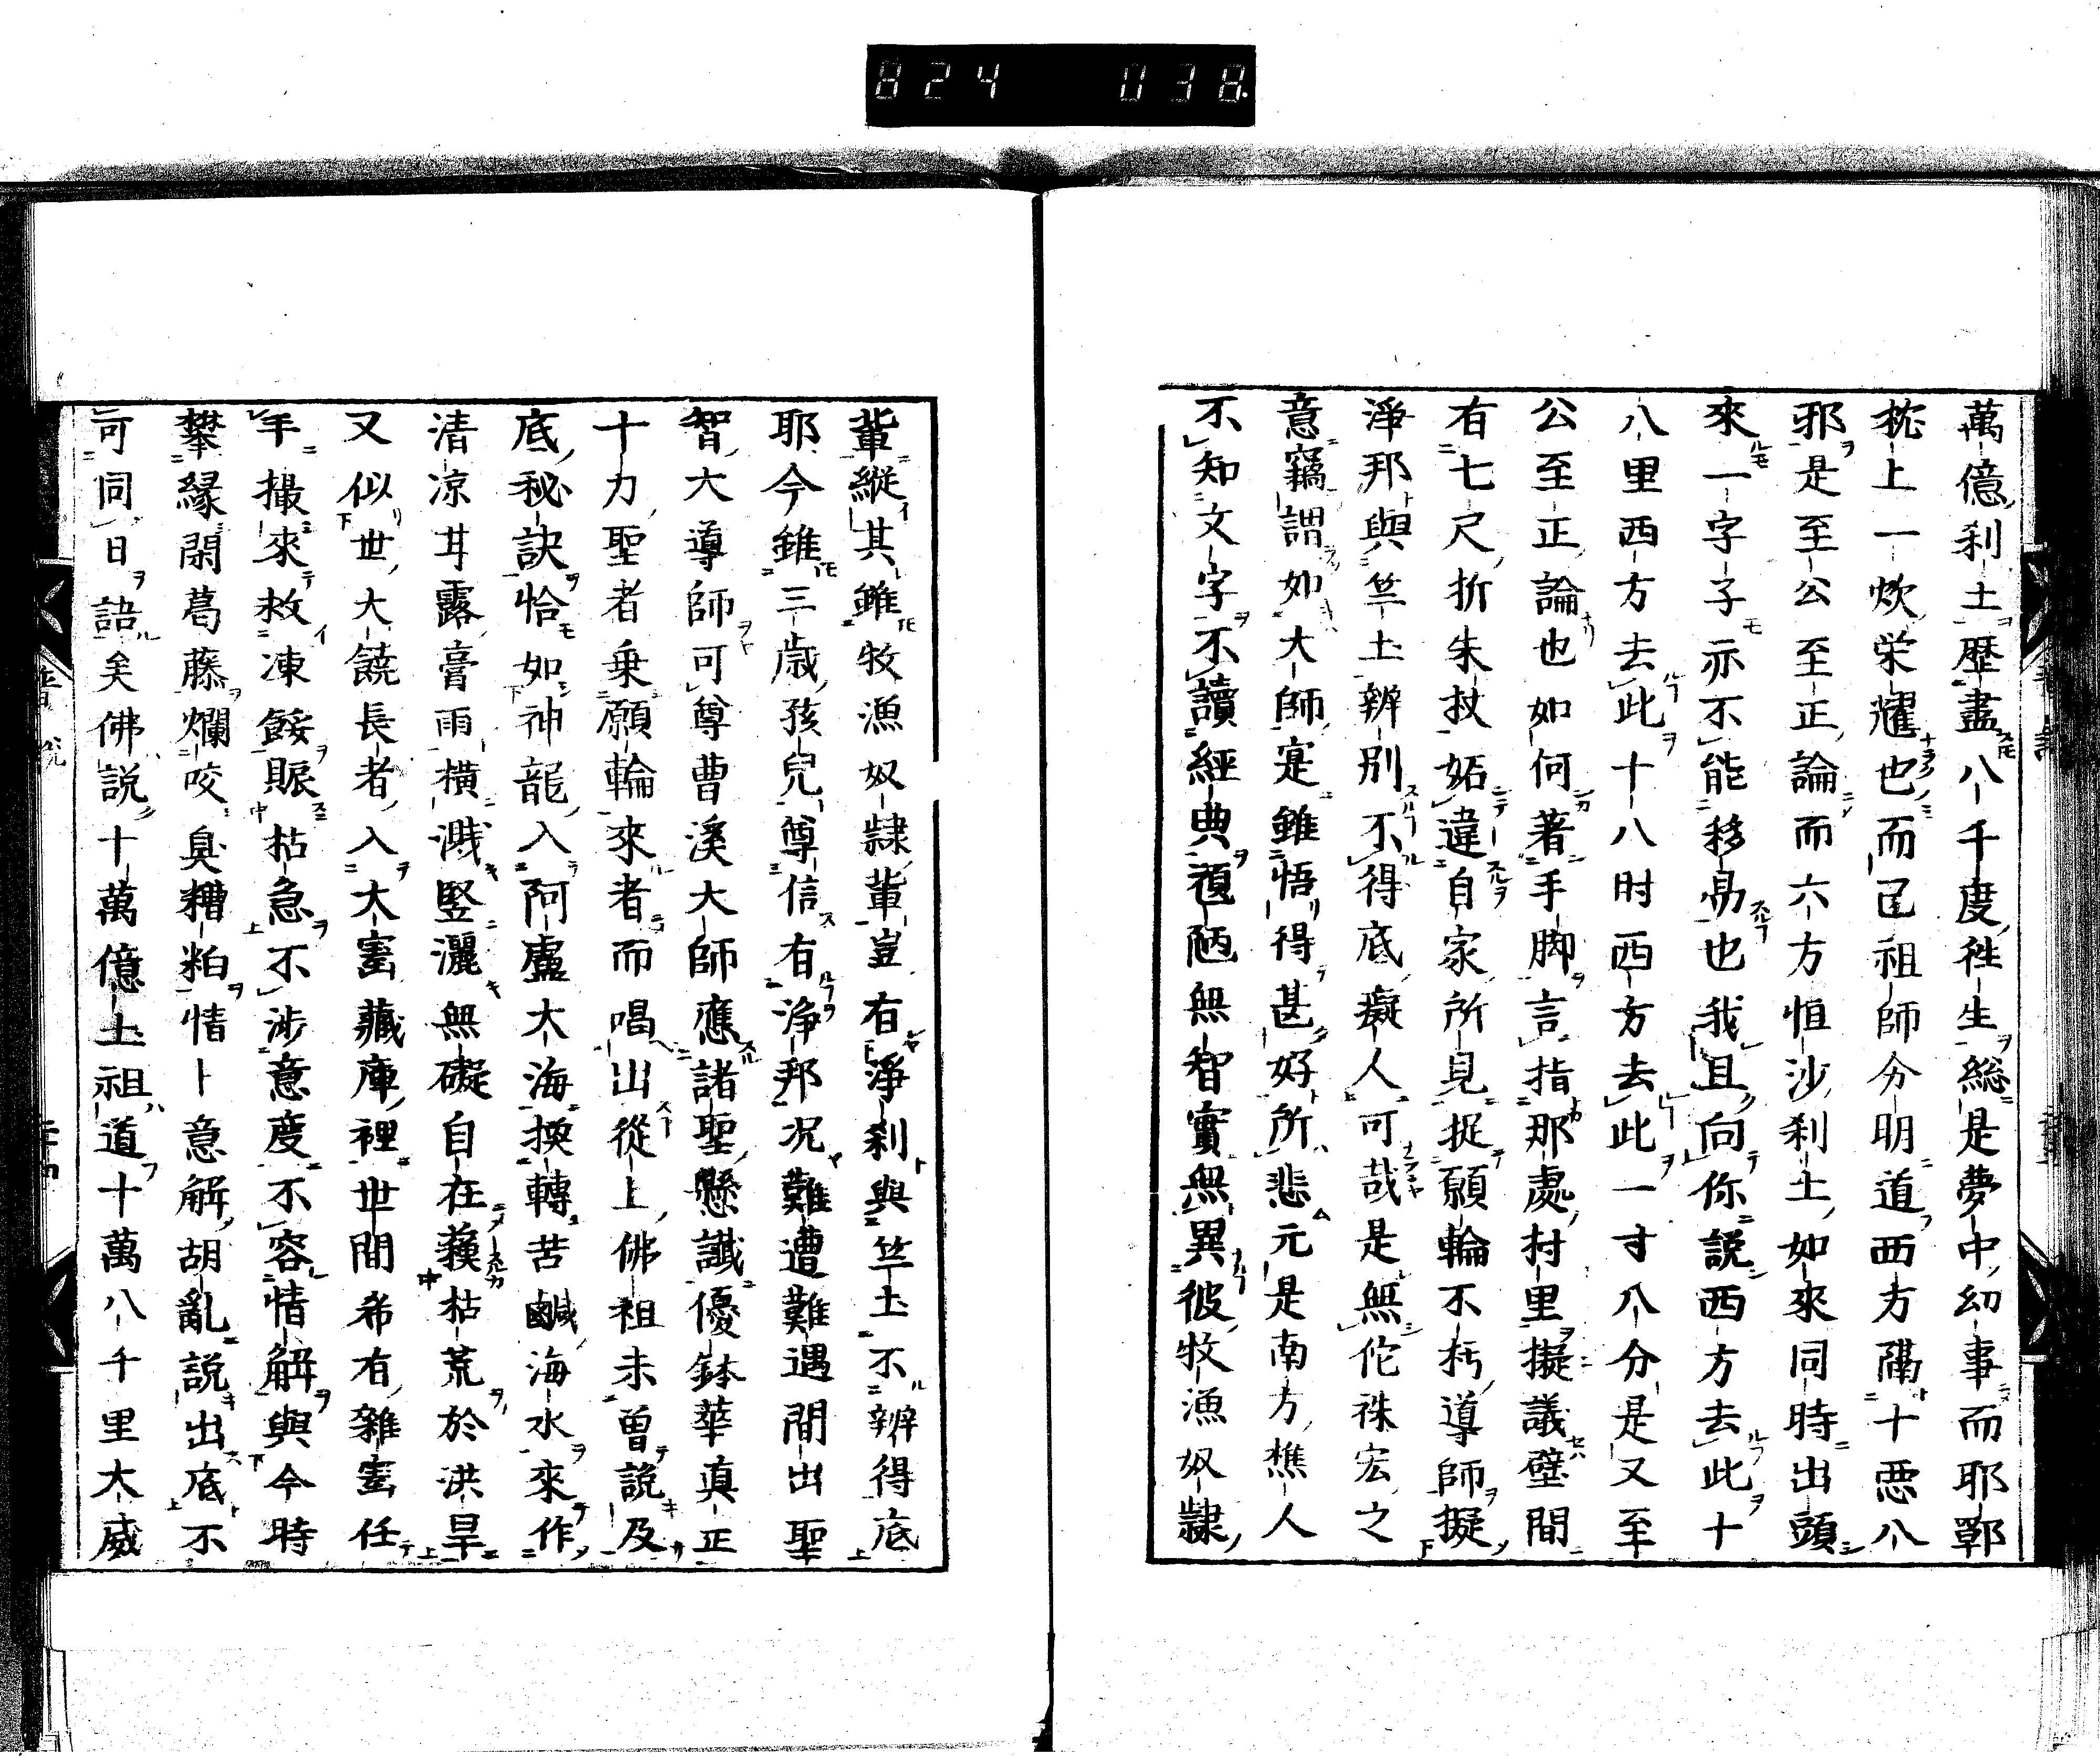 824 038
萬億刹土歷盡八千度往生総是夢中幻事而耶鄲
枕上一炊栄耀也而已祖師分明道西方隔十悪八
邪是至公至正論而六方恒沙刹土如來同時出頭
來一字子亦不能移易也我且向你説西方去此十
八里西方去此十八肘西方去此一寸八分是又至
公至正論也如何著手脚言指那處村里擬議壁間
有七尺折朱杖妬違自家所見捉願輪不朽導師擬
淨邦與竺土辨別不得底癡人可哉是無佗袾宏之
意竊謂如大師寔雖悟得甚好所悲元是南方樵人
不知文字不讀經典頑陋無智實無異彼牧漁奴隷
輩縱其雖牧漁奴隷輩豈有淨刹與竺土不辨得底
耶今雖三歳孩兒尊信有浄邦况難遭難遇間出聖
智大導師可尊曹溪大師應諸聖懸讖優鉢華真正
十力聖者乗願輪來者而唱出從上佛祖未曽説及
底秘訣恰如神龍入阿盧大海換轉苦鹹海水來作
清凉甘露膏雨横濺竪灑無礙自在蘓枯荒於洪旱
又似世大饒長者入大寳藏庫裡世間希有雑寳任
手撮來救凍餒賑枯急不渉意度不容情解與今時
攀縁閑葛藤爛咬臭糟粕情卜意解胡亂説出底不
可同日語矣佛説十萬億土祖道十萬八千里大威